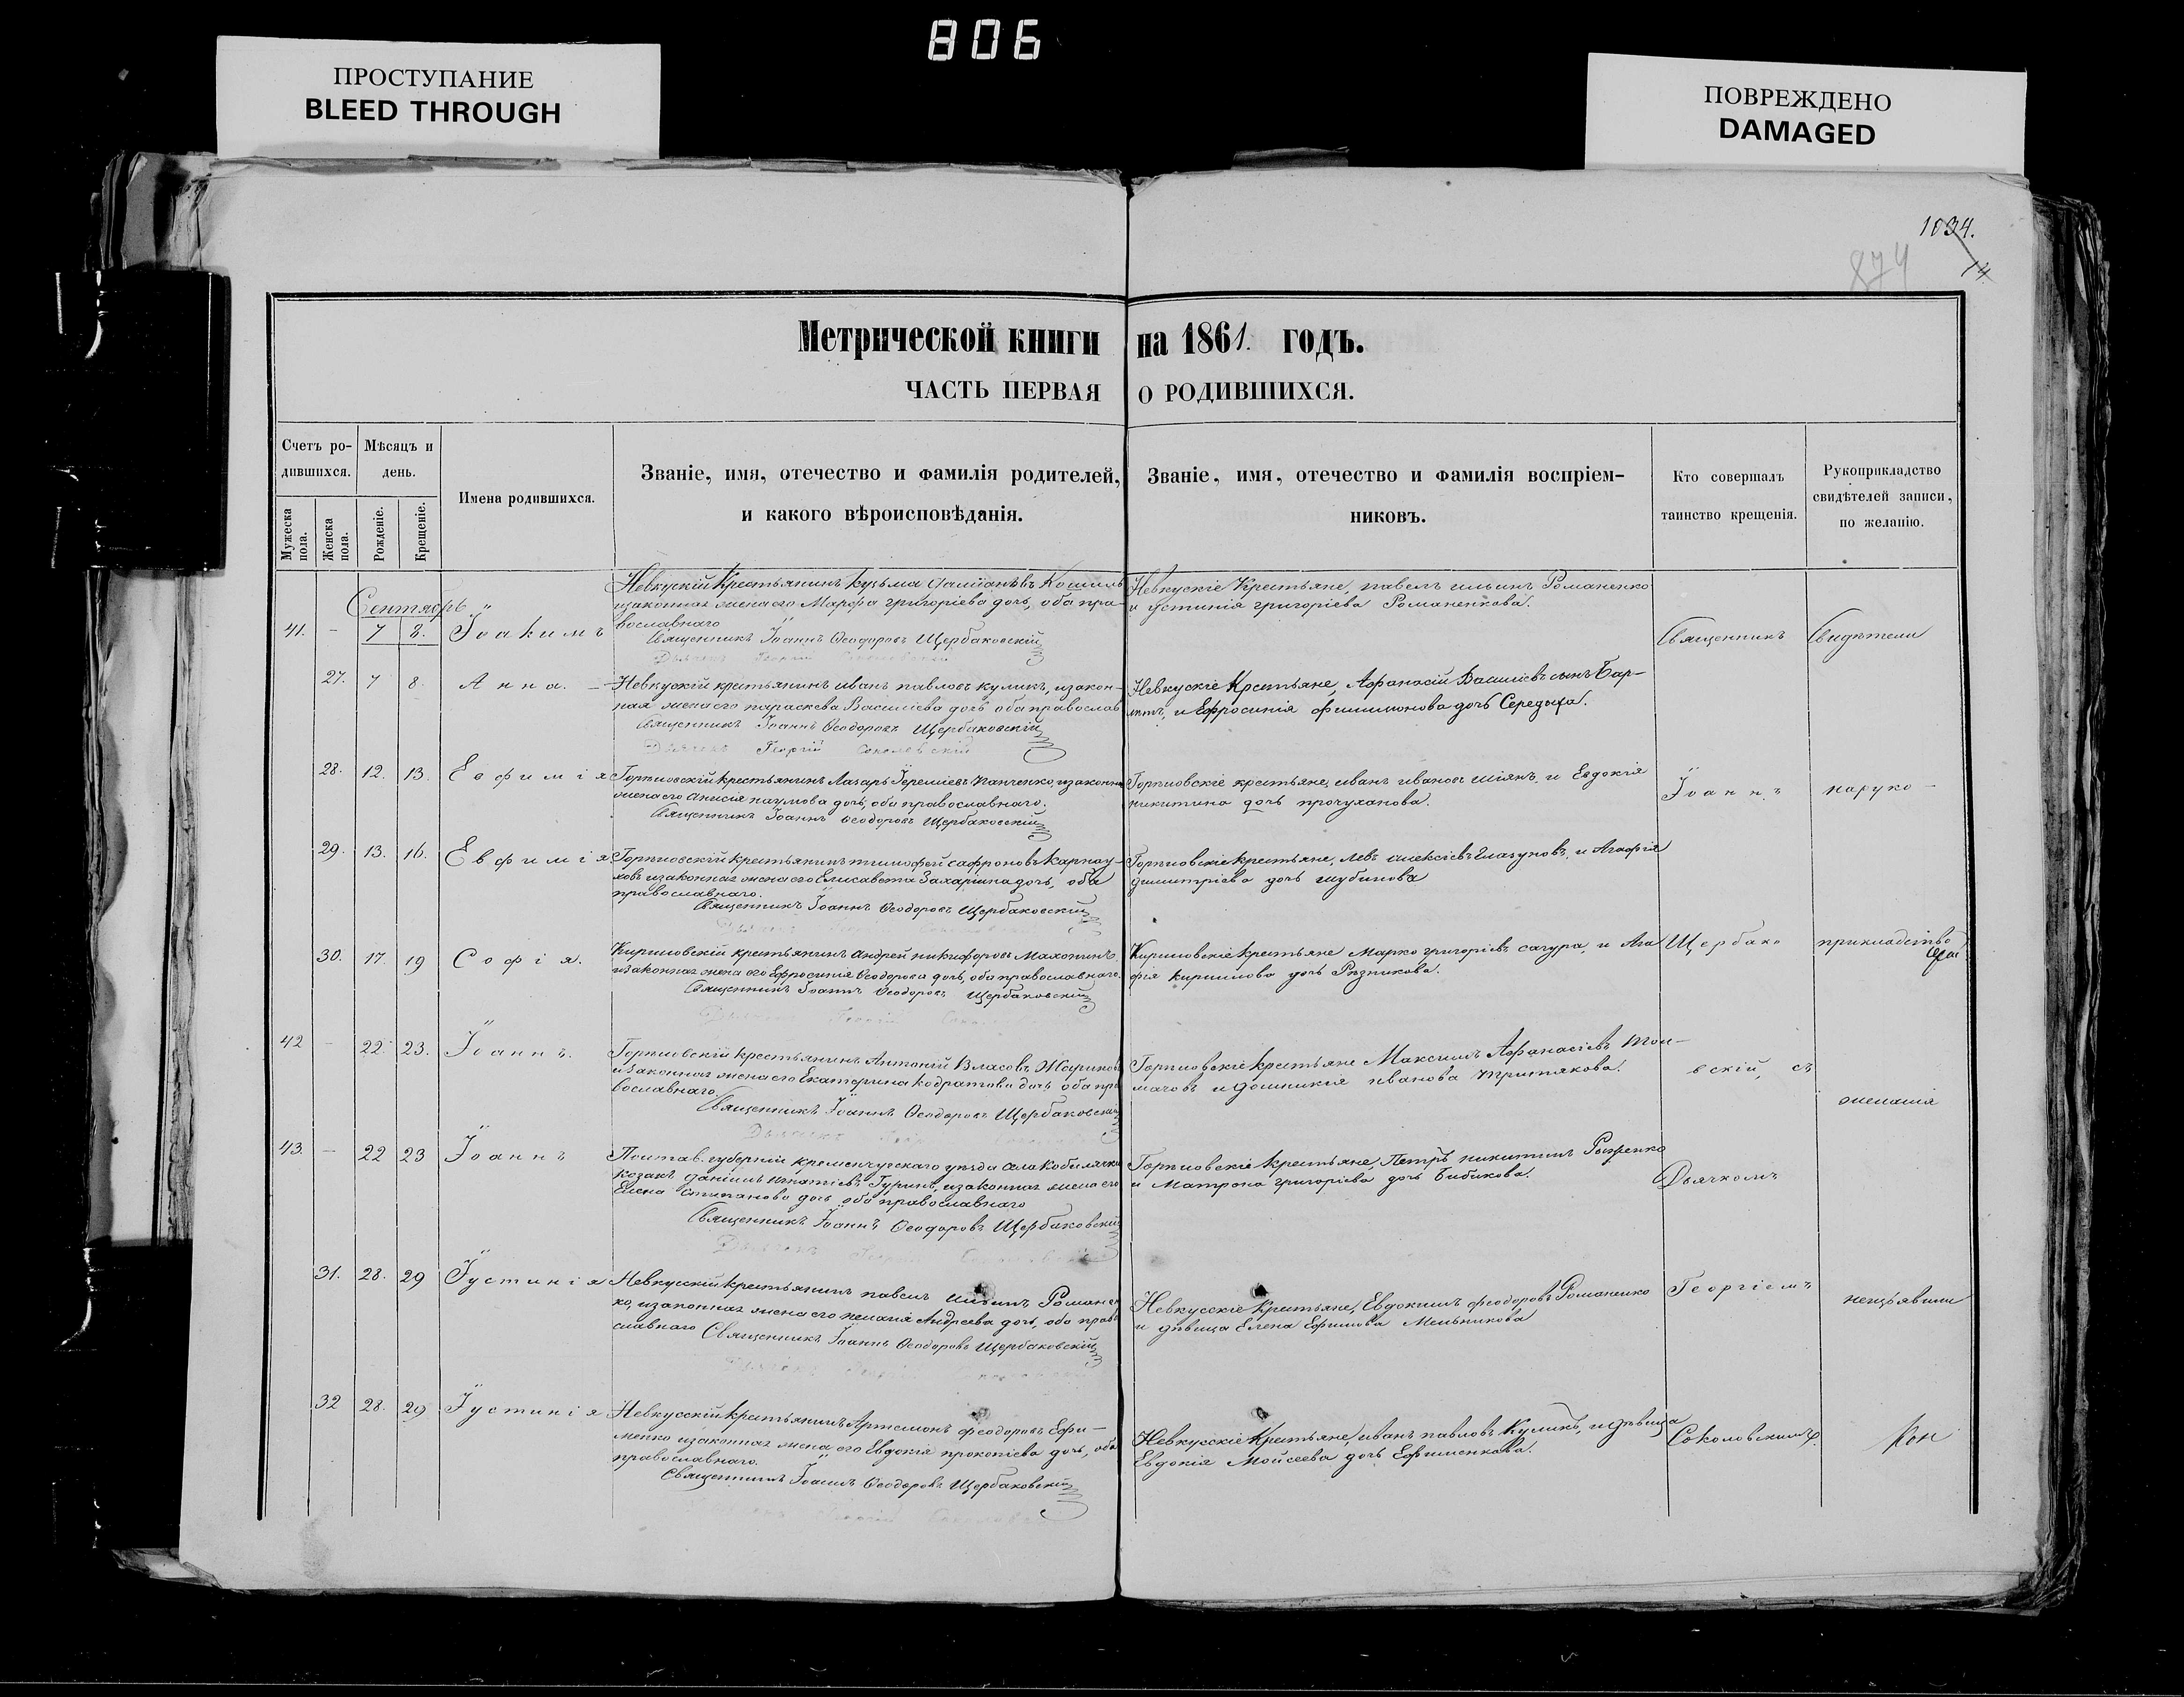 806
ПРОСТУПАНИЕ
BLEED THROUGH
ПОВРЕЖДЕНО
DAMAGED
1034.
874
14
Метрической книги на 1861. годъ.
ЧАСТЬ ПЕРВАЯ О РОДИВШИХСЯ.
Счетъ ро-
дившихся.
Мѣсяцъ и
день.
Мужеска
пола.
Женска
пола.
Рожденіе.
Крещеніе.
Имена родившихся.
Званіе, имя, отечество и фамилія родителей,
и какого вѣроисповѣданія.
Званіе, имя, отечество и фамилія воспріем-
никовъ.
Кто совершалъ
таинство крещенія.
Рукоприкладство
свидѣтелей записи,
по желанію.
Сентябрь
41. - 7 8. Іоакимъ
Невкускій Крестьянинъ Кузьма
изаконная жена его Марфа григоріева дочь, оба пра-
вославнаго
Священникъ Іоаннъ Ѳеодоровъ Щербаковскій
Невкускіе Крестьяне, павелъ ильинъ Романенко
и устинія григоріева Романенкова.
27. 7 8. Анна.
Невкускій крестьянинъ иванъ павловъ куликъ, изакон-
ная жена его параскева Василіева дочь оба православ
Священникъ Іоаннъ Ѳеодоровъ Щербаковскій
Дьячекъ Георгій Соколовскій
Невкускіе Крестьяне, Афанасій Василіевъ сынъ Бар-
и Ефросинія филимонова дочь Середыха.
28. 12. 13. Евфимія
Горпиовскій крестьянинъ Лазарь Іереміевъ Панченко, изаконна
жена его Анисія наумова дочь, оба православнаго.
Священникъ Іоаннъ Ѳеодоровъ Щербаковскій
Горпиовскіе крестьяне, иванъ ивановъ шіянъ, и Евдокія
никитина дочь прочуханова.
29. 13. 16. Евфимія
Горпиовскій крестьянинъ тимофей сафроновъ Карпау-
ховъ изаконная жена его Елисавета Захаріина дочь, оба
православнаго.
Священникъ Іоаннъ Ѳеодоровъ Щербаковскій
Горпиовскіе крестьяне, Левъ алексіевъ Глазуновъ, и Агафія
димитріева дочь шубинова
30. 17. 19 Софія.
Кириловскій крестьянинъ Андрей никифоровъ Махотинъ,
изаконная жена его Ефросинія Ѳеодорова дочь, оба православнаго.
Священникъ Іоаннъ Ѳеодоровъ Щербаковскій
Кириловскіе крестьяне Марко григоріевъ сагура, и Ага
фія кирилова дочь Рѣзникова.
42 - 22. 23. Іоаннъ.
Горпиовскій крестьянинъ Антоній Власовъ Жариновъ
изаконная жена его Екатерина кодратова дочь оба пра
вославнаго.
Священникъ Іоаннъ Ѳеодоровъ Щербаковскій
Горпиовскіе крестьяне Максимъ Афанасіевъ Тол-
мачовъ и домникія иванова Третякова.
43. - 22 23 Іоаннъ
Полтав. губерніи кременчугскаго уѣзда села Кобилячки
козакъ даніилъ игнатіевъ Гуринъ, изаконная жена его
Елена Степанова дочь оба православнаго
Священникъ Іоаннъ Ѳеодоровъ Щербаковскій
Горпиовскіе крестьяне, Петръ никитинъ Рыженко
и Матрона григоріева дочь Бибикова.
31. 28. 29 Іустинія
Невкусскій крестьянинъ павелъ ильинъ Роману
ко, изаконная жена его пелагія Андреева дочь, оба право
славнаго Священникъ Іоаннъ Ѳеодоровъ Щербаковскій
Невкусскіе Крестьяне, Евдокимъ феодоровъ Романенко
и дѣвица Елена Ефимова Мельникова
32 28. 29 Іустинія
Невкусскій крестьянинъ Артемонъ феодоровъ Ефи-
менко изаконная жена его Евдокія прокопіева дочь, оба
православнаго.
Священникъ Іоаннъ Ѳеодоровъ Щербаковскій
Невкусскіе Крестьяне, иванъ павловъ Куликъ, и дѣвица
Евдокія Мойсеева дочь Ефименкова.
Священникъ
Іоаннъ
Щербако
вскій, съ
Дьячкомъ
Георгіемъ
Соколовскимъ.
Свидѣтели
наруко-
прикладство
желанія
неизъявили